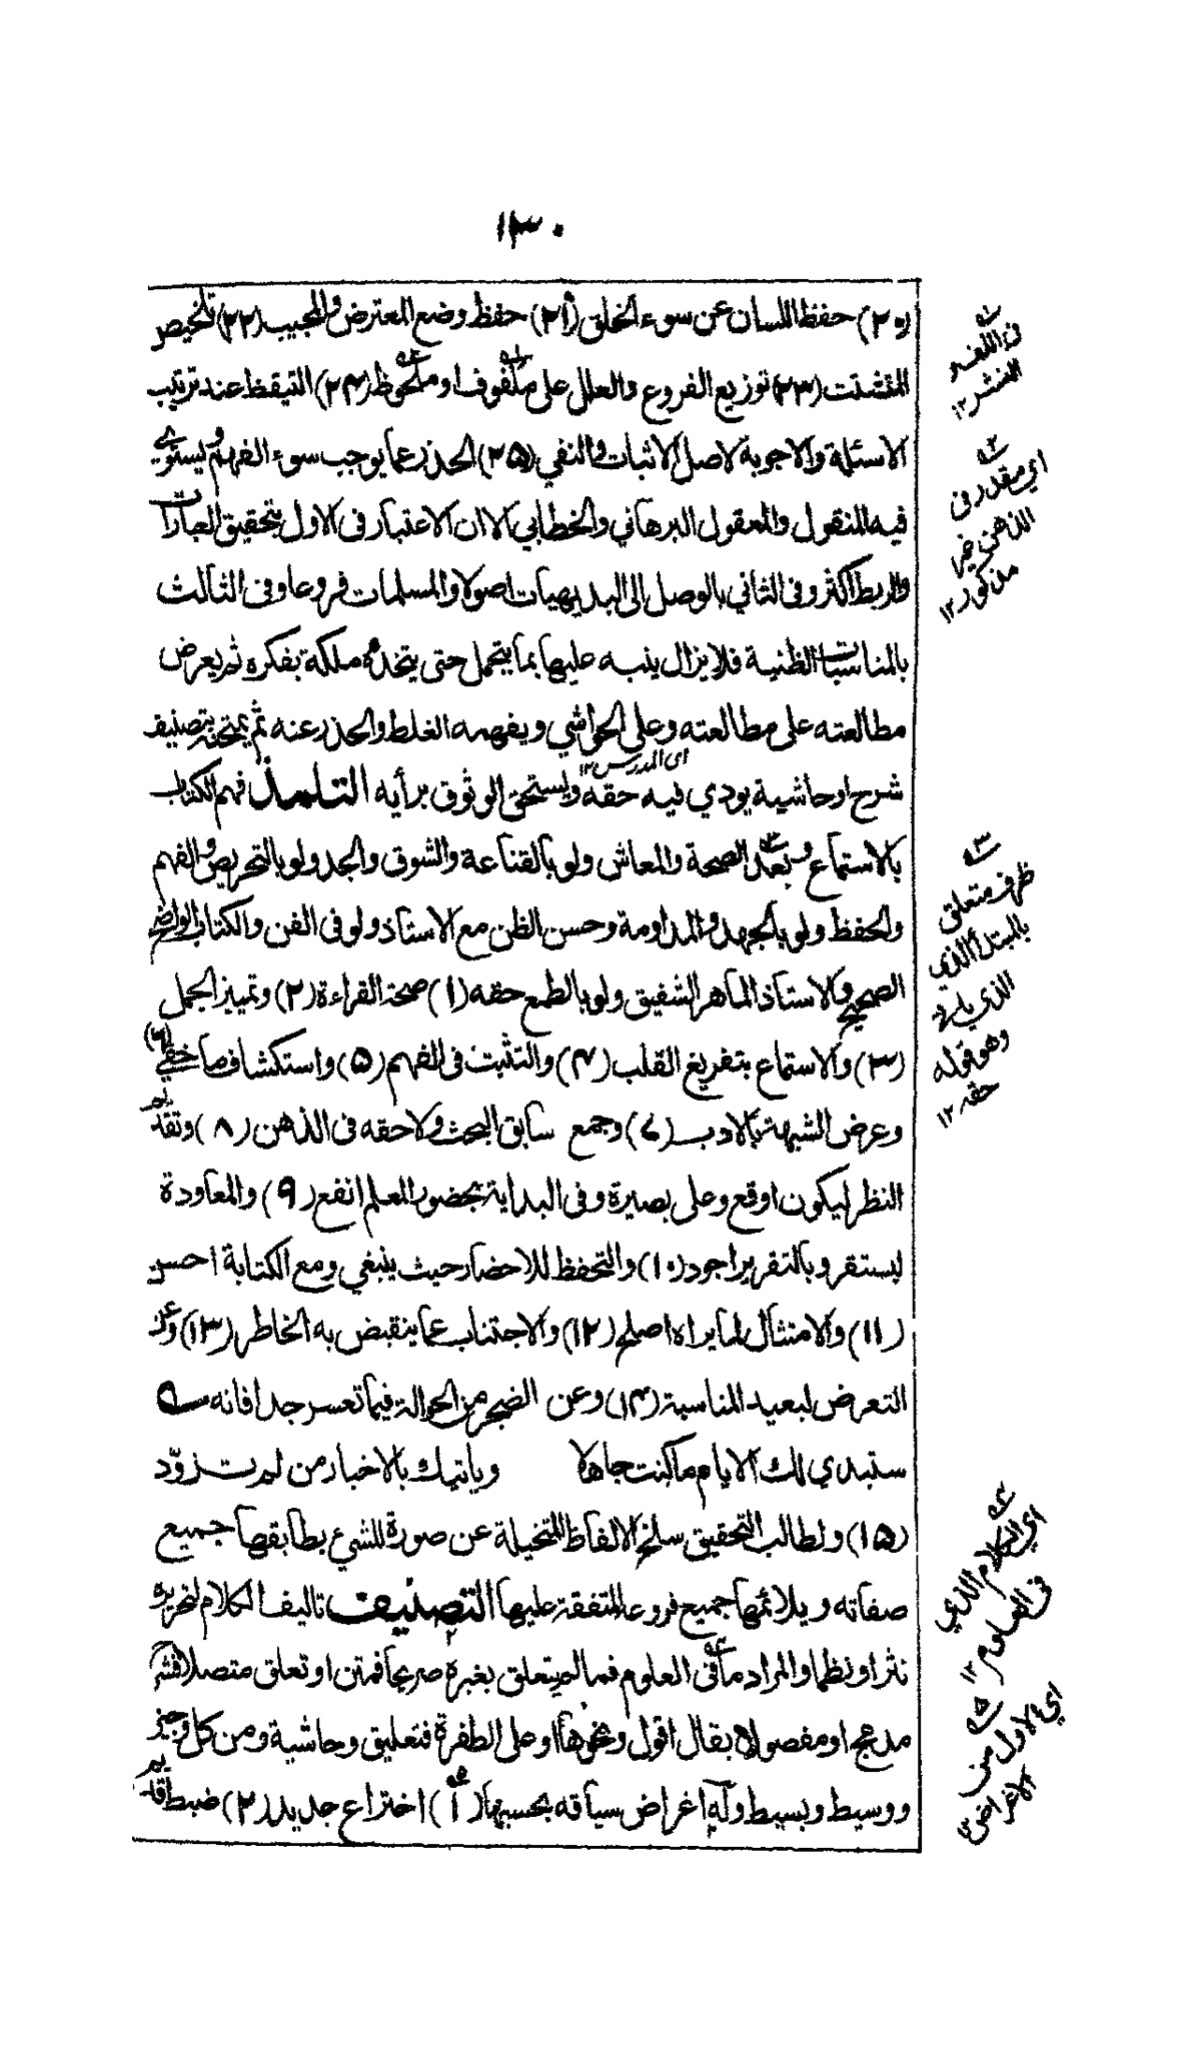 ١٣٠
(٢٠) حفظ اللسان عن سوء الخلق (٢١) حفظ وضع المعترض والمجيب (٢٢) تلخيص
المتشتت (٢٣) توزيع الفروع والعلل على ملفوف او ملحوظ (٢٤) التيقظ عند ترتيب
الاسئلة والاجوبة لاصل الاثبات والنفي (٢٥) الحذر عما يوجب سوء الفهم ويستوي
فيه المنقول والمعقول البرهاني والخطابي الا ان الاعتبار فى الاول بتحقيق العبارات
والربط اكثر وفى الثاني بالوصل الى البديهيات اصولا والمسلمات فروعا وفى الثالث
بالمناسبات الظنية فلا يزال ينبه عليها بما يتحمل حتى يتخذه ملكة بفكره ثم يعرض
مطالعته على مطالعته وعلى الحواشي ويفهمه الغلط والحذر عنه ثم يمتحنه بتصنيف
اى المدرس ١٢
شرح او حاشية يودي فيه حقه ويستحق الوثوق برأيه التلمذ فهم الكتاب
بالاستماع وبعد الصحة والمعاش ولو بالقناعة والشوق والجد ولو بالتحريص والفهم
والحفظ ولو بالجهد والمداومة وحسن الظن مع الاستاذ ولو فى الفن والكتاب الواضح
الصحيح والاستاذ الماهر الشفيق ولو بالطمع حقه (١) صحة القراءة (٢) وتميز الجمل
(٣) والاستماع بتفريغ القلب (٤) والتثبت فى الفهم (٥) واستكشاف ما خفي (٦)
وعرض الشبهة بالادب (٧) وجمع سابق البحث ولاحقه فى الذهن (٨) وتقديم
النظر ليكون اوقع وعلى بصيرة وفى البداية بحضور المعلم انفع (٩) والمعاودة
ليستقر وبالتقرير اجود (١٠) والتحفظ للاحضار حيث ينبغي ومع الكتابة احسن
(١١) والامتثال لما يراه اصلح (١٢) والاجتناب عما ينقبض به الخاطر (١٣) وعن
التعرض لبعيد المناسبة (١٤) وعن الضجر من الحوالة فيما تعسر جدا فانه
ستبدي لك الايام ما كنت جاهلا وياتيك بالاخبار من لم تزوّد
(١٥) ولطالب التحقيق سلخ الالفاظ المتخيلة عن صورة للشيء يطابقها جميع
صفاته ويلائمها جميع فروعه المتفقة عليها التصنيف تاليف الكلام لتحريره
نثرا ونظما والمراد ما فى العلوم فما لم يتعلق بغيره صريحا فمتن او تعلق متصلا فشرح
مدمج او مفصولا بقال اقول ونحوها او على الطفرة فتعليق وحاشية ومن كل وجيز
ووسيط وبسيط وله اغراض سياقه بحسبها (١) اختراع جديد (٢) ضبط قديم
فى اللف و
النشر ١٢
اي مقدر فى
الذهن غير
مذكور ١٢
ظرف متعلق
بالمبتدأ الذي
وهو قوله
حقه ١٢
اي الكلام الذي
فى العلوم ١٢
اي الاول من
الاغراض ١٢